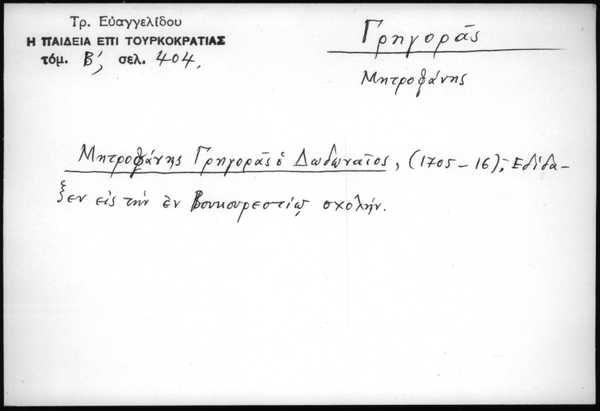 Τρ. Εὐαγγελίδου
Η ΠΑΙΔΕΙΑ ΕΠΙ ΤΟΥΡΚΟΚΡΑΤΙΑΣ
τόμ. Β', σελ. 404.
Γρηγορᾶς
Μητροφάνης
Μητροφάνης Γρηγορᾶς ὁ Δωδωναῖος, (1705-16), Εδίδα-
ξεν εἰς τὴν ἐν Βουκουρεστίῳ σχολήν.